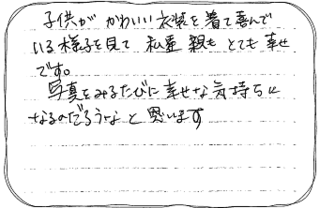 子供が かわいい衣装を着て喜んで
いる様子を見て 私達 親も とても 幸せ
です。
写真をみるたびに幸せな気持ちに
なるのだろうなと思います